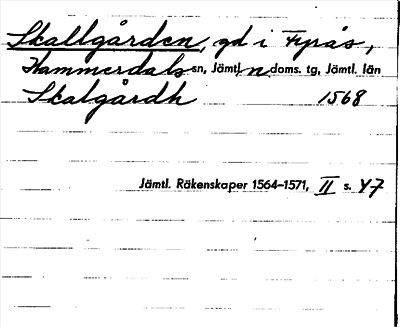 Skallgården, gd i Fyrås,
Hammerdals sn, Jämtl. n doms. tg, Jämtl. län
Skalgårdh 1568
Jämtl. Räkenskaper 1564–1571, II s. 47